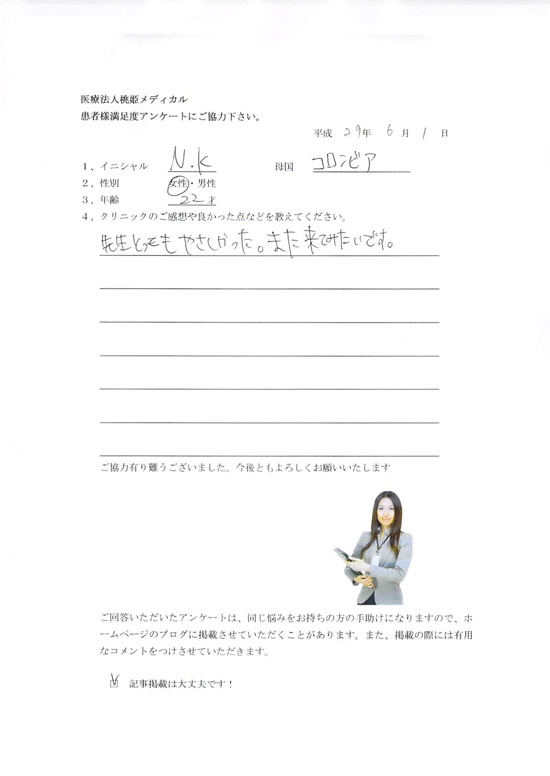 医療法人桃姫メディカル
患者様満足度アンケートにご協力下さい。
平成 29年 6月 1日
1、イニシャル N.K 母国 コロンビア
2、性別 女性・男性
3、年齢 22才
4、クリニックのご感想や良かった点などを教えてください。
先生とってもやさしかった。また来てみたいです。
ご協力有り難うございました。今後ともよろしくお願いいたします
ご回答いただいたアンケートは、同じ悩みをお持ちの方の手助けになりますので、ホ
ームページのブログに掲載させていただくことがあります。また、掲載の際には有用
なコメントをつけさせていただきます。
☑ 記事掲載は大丈夫です！